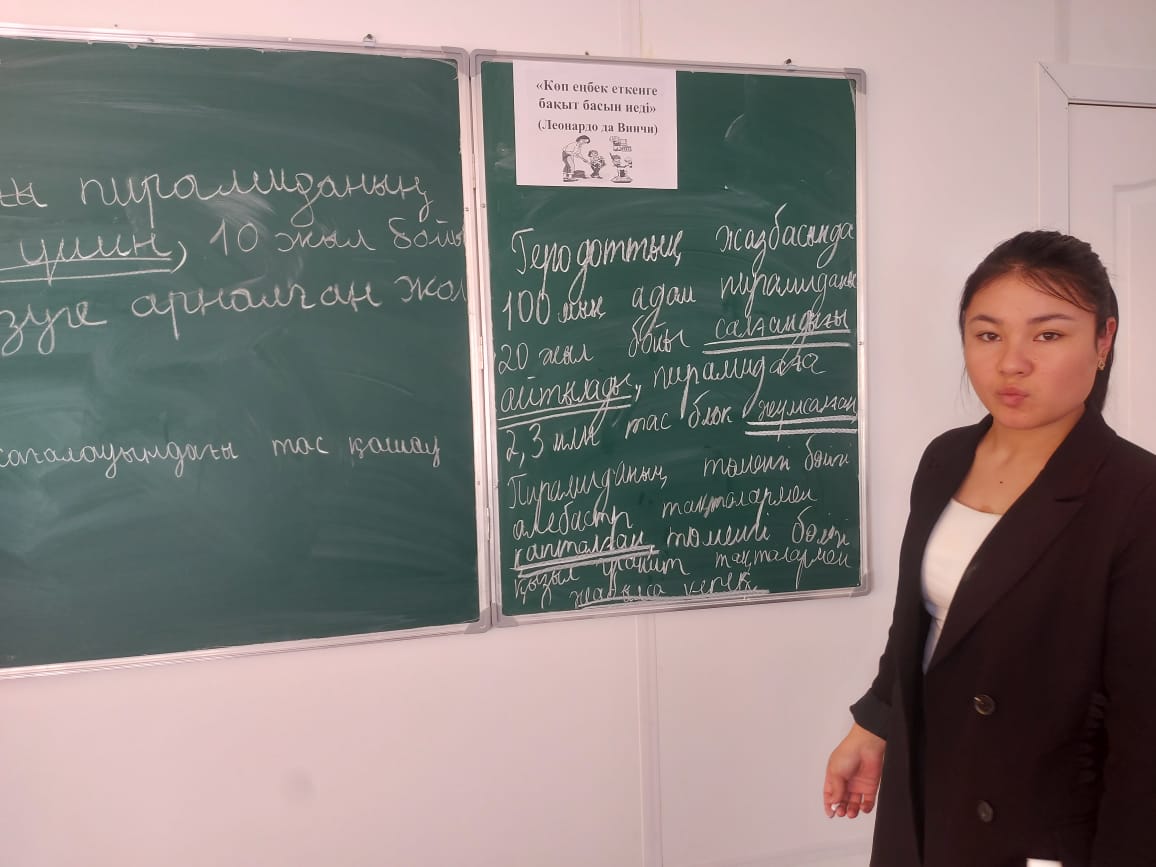 ы пирамиданың
үшін, 10 жыл бойы
зуге арналған жол
сағалауындағы тас қашау
«Көп еңбек еткенге
бақыт басын иеді»
(Леонардо да Винчи)
Геродоттың жазбасында
100 мың адам пирамиданы
20 жыл бойы салғандығы
айтылады, пирамидаға
2,3 млн тас блок жұмсалған
Пирамиданың төменгі бөлігі
алебастр тақталармен
қапталған төменгі бөлігі
қызыл гранит тақталармен
жабылса керек.